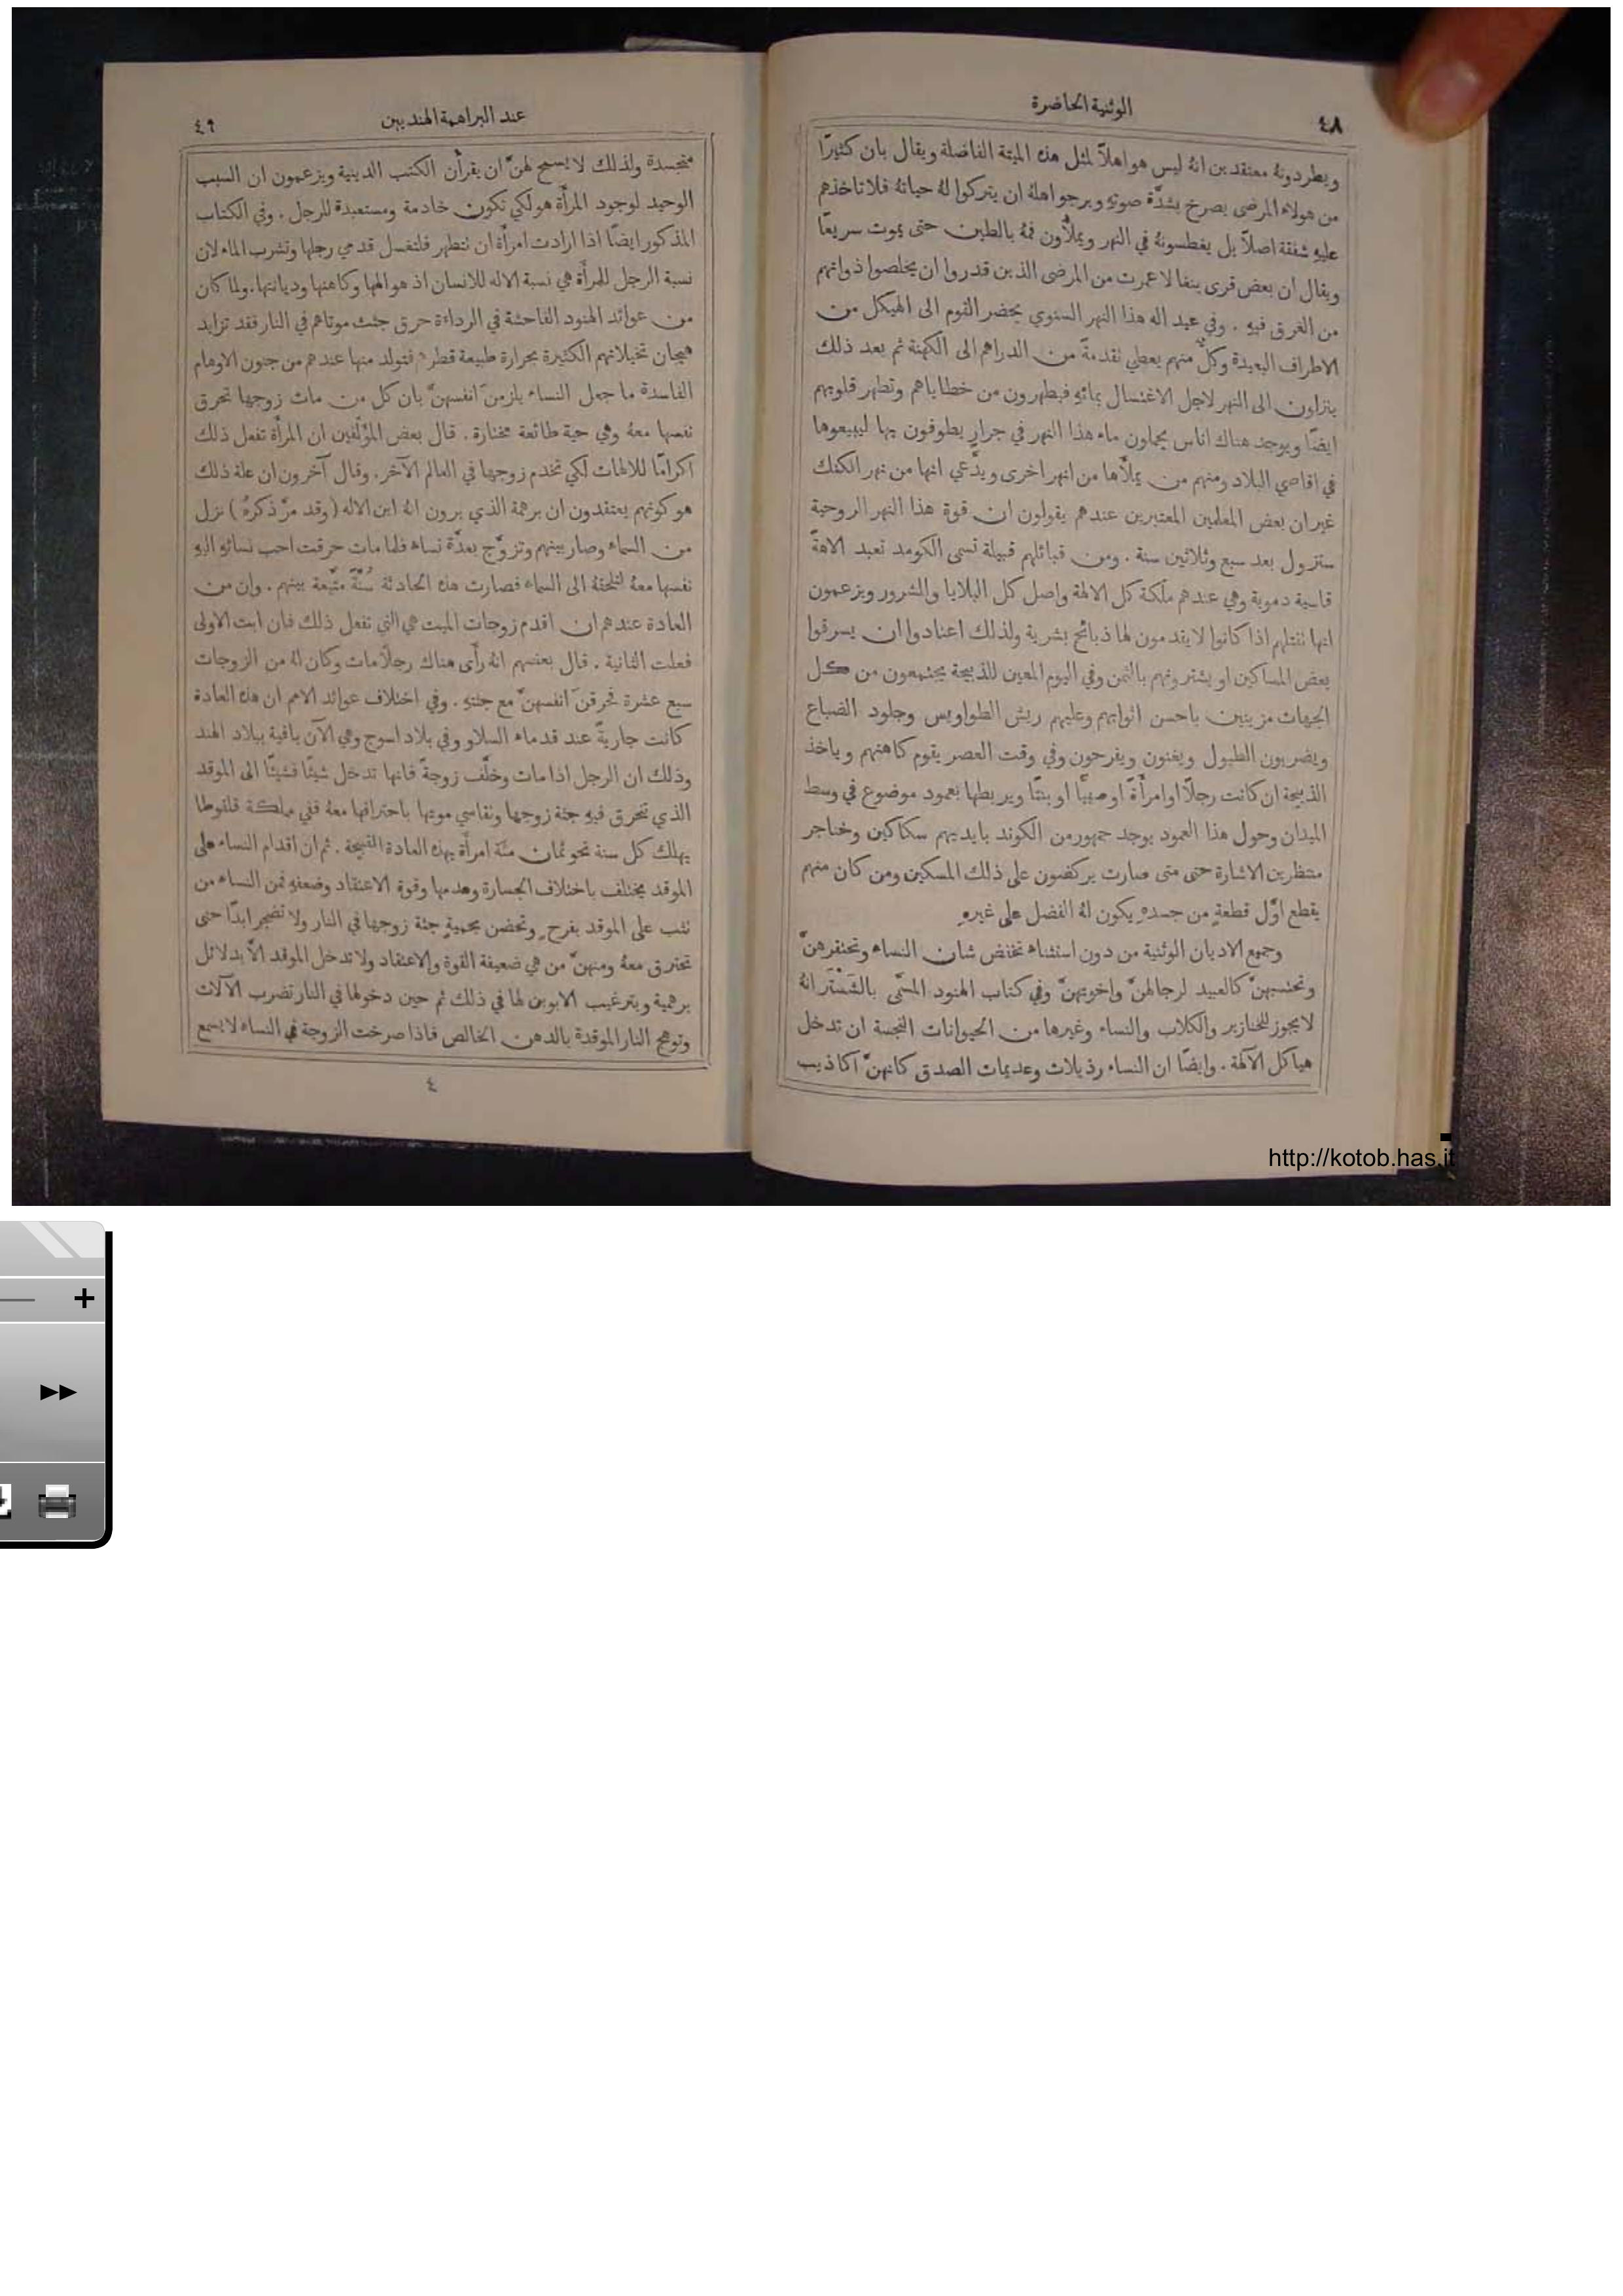 ٤٨
الوثنية الحاضرة
ويطردونهُ معتقدين انهُ ليس هو اهلاً لمثل هذه الميتة الفاضلة ويقال بان كثيرًا
من هولاء المرضى يصرخ بشدَّة صوتهِ ويرجو اهلهُ ان يتركوا لهُ حياتهُ فلا تاخذهم
عليهِ شفقة اصلاً بل يغطسونهُ في النهر ويملأُون فمهُ بالطين حتى يموت سريعًا
ويقال ان بعض قرى بنغالا عمرت من المرضى الذين قدروا ان يخلصوا ذواتهم
من الغرق فيهِ . وفي عيد اله هذا النهر السنوي يحضر القوم الى الهيكل من
الاطراف البعيدة وكلٌّ منهم يعطي تقدمةً من الدراهم الى الكهنة ثم بعد ذلك
ينزلون الى النهر لاجل الاغتسال بمائهِ فيطهرون من خطاياهم وتطهر قلوبهم
ايضًا ويوجد هناك اناس يحملون ماء هذا النهر في جرارٍ يطوفون بها ليبيعوها
في اقاصي البلاد ومنهم من يملأُها من انهر اخرى ويدَّعي انها من نهر الكنك
غير ان بعض المعلمين المعتبرين عندهم يقولون ان قوة هذا النهر الروحية
ستزول بعد سبع وثلاثين سنة . ومن قبائلهم قبيلة تسمى الكومد تعبد الاهةً
قاسية دموية وهي عندهم ملكة كل الالهة واصل كل البلايا والشرور ويزعمون
انها تقتلهم اذا كانوا لا يقدمون لها ذبائح بشرية ولذلك اعتادوا ان يسرقوا
بعض المساكين او يشترونهم بالثمن وفي اليوم المعين للذبيحة يجتمعون من كل
الجهات مزينين باحسن اثوابهم وعليهم ريش الطواويس وجلود الضباع
ويضربون الطبول ويغنون ويفرحون وفي وقت العصر يقوم كاهنهم وياخذ
الذبيحة ان كانت رجلاً او امرأَةً او صبيًّا او بنتًا ويربطها بعمود موضوع في وسط
الميدان وحول هذا العمود يوجد جمهور من الكوند بايديهم سكاكين وخناجر
منتظرين الاشارة حتى متى صارت يركضون على ذلك المسكين ومن كان منهم
يقطع اوَّل قطعةٍ من جسدهِ يكون لهُ الفضل على غيرهِ
وجميع الاديان الوثنية من دون استثناء تخفض شان النساء وتحتقرهنَّ
وتحتسبهنَّ كالعبيد لرجالهنَّ واخوتهنَّ وفي كتاب الهنود المسمَّى بالشَسْتَر انهُ
لا يجوز للخنازير والكلاب والنساء وغيرها من الحيوانات النجسة ان تدخل
هياكل الآلهة . وايضًا ان النساء رذيلات وعديمات الصدق كانهنَّ اكاذيب
عند البراهمة الهنديين
٤٩
متجسدة ولذلك لا يسمح لهنَّ ان يقرأن الكتب الدينية ويزعمون ان السبب
الوحيد لوجود المرأَة هو لكي تكون خادمة ومستعبدة للرجل . وفي الكتاب
المذكور ايضًا اذا ارادت امرأَة ان تتطهر فلتغسل قدمي رجلها وتشرب الماء لان
نسبة الرجل للمرأَة هي نسبة الاله للانسان اذ هو الهها وكاهنها وديانتها. ولما كان
من عوائد الهنود الفاحشة في الرداءة حرق جثث موتاهم في النار فقد تزايد
هيجان تخيلاتهم الكثيرة بحرارة طبيعة قطرهم فتولد منها عندهم من جنون الاوهام
الفاسدة ما جعل النساء يلزمنَ انفسهنَّ بان كل من مات زوجها تحرق
نفسها معهُ وهي حية طائعة مختارة . قال بعض المؤَلفين ان المرأَة تفعل ذلك
اكرامًا للالهات لكي تخدم زوجها في العالم الآخر. وقال آخرون ان علة ذلك
هو كونهم يعتقدون ان برهمة الذي يرون انهُ ابن الاله (وقد مرَّ ذكرهُ) نزل
من السماء وصار بينهم وتزوَّج بعدَّة نساء فلما مات حرقت احب نسائهِ اليهِ
نفسها معهُ لتلحقهُ الى السماء فصارت هذه الحادثة سُنَّةً متَّبعة بينهم . وان من
العادة عندهم ان اقدم زوجات الميت هي التي تفعل ذلك فان ابت الاولى
فعلت الثانية . قال بعضهم انهُ رأَى هناك رجلاً مات وكان لهُ من الزوجات
سبع عشرة فحرقنَ انفسهنَّ مع جثتهِ . وفي اختلاف عوائد الامم ان هذه العادة
كانت جاريةً عند قدماء السلاو وفي بلاد اسوج وهي الآن باقية ببلاد الهند
وذلك ان الرجل اذا مات وخلَّف زوجةً فانها تدخل شيئًا فشيئًا الى الموقد
الذي تحرق فيهِ جثة زوجها وتقاسي موتها باحتراقها معهُ ففي مملكة قلنوطا
يهلك كل سنة نحو ثمان مئة امرأَة بهذه العادة القبيحة . ثم ان اقدام النساء على
الموقد يختلف باختلاف الجسارة وعدمها وقوة الاعتقاد وضعفهِ فمن النساء من
تثب على الموقد بفرحٍ وتحضن بحميةٍ جثة زوجها في النار ولا تضجر ابدًا حتى
تحترق معهُ ومنهنَّ من هي ضعيفة القوة والاعتقاد ولا تدخل الموقد الاَّ بدلائل
برهمية وبترغيب الابوين لها في ذلك ثم حين دخولها في النار تضرب الآلات
وتوهج النار الموقدة بالدهن الخالص فاذا صرخت الزوجة النساء لا يسمع
٤
http://kotob.has.it